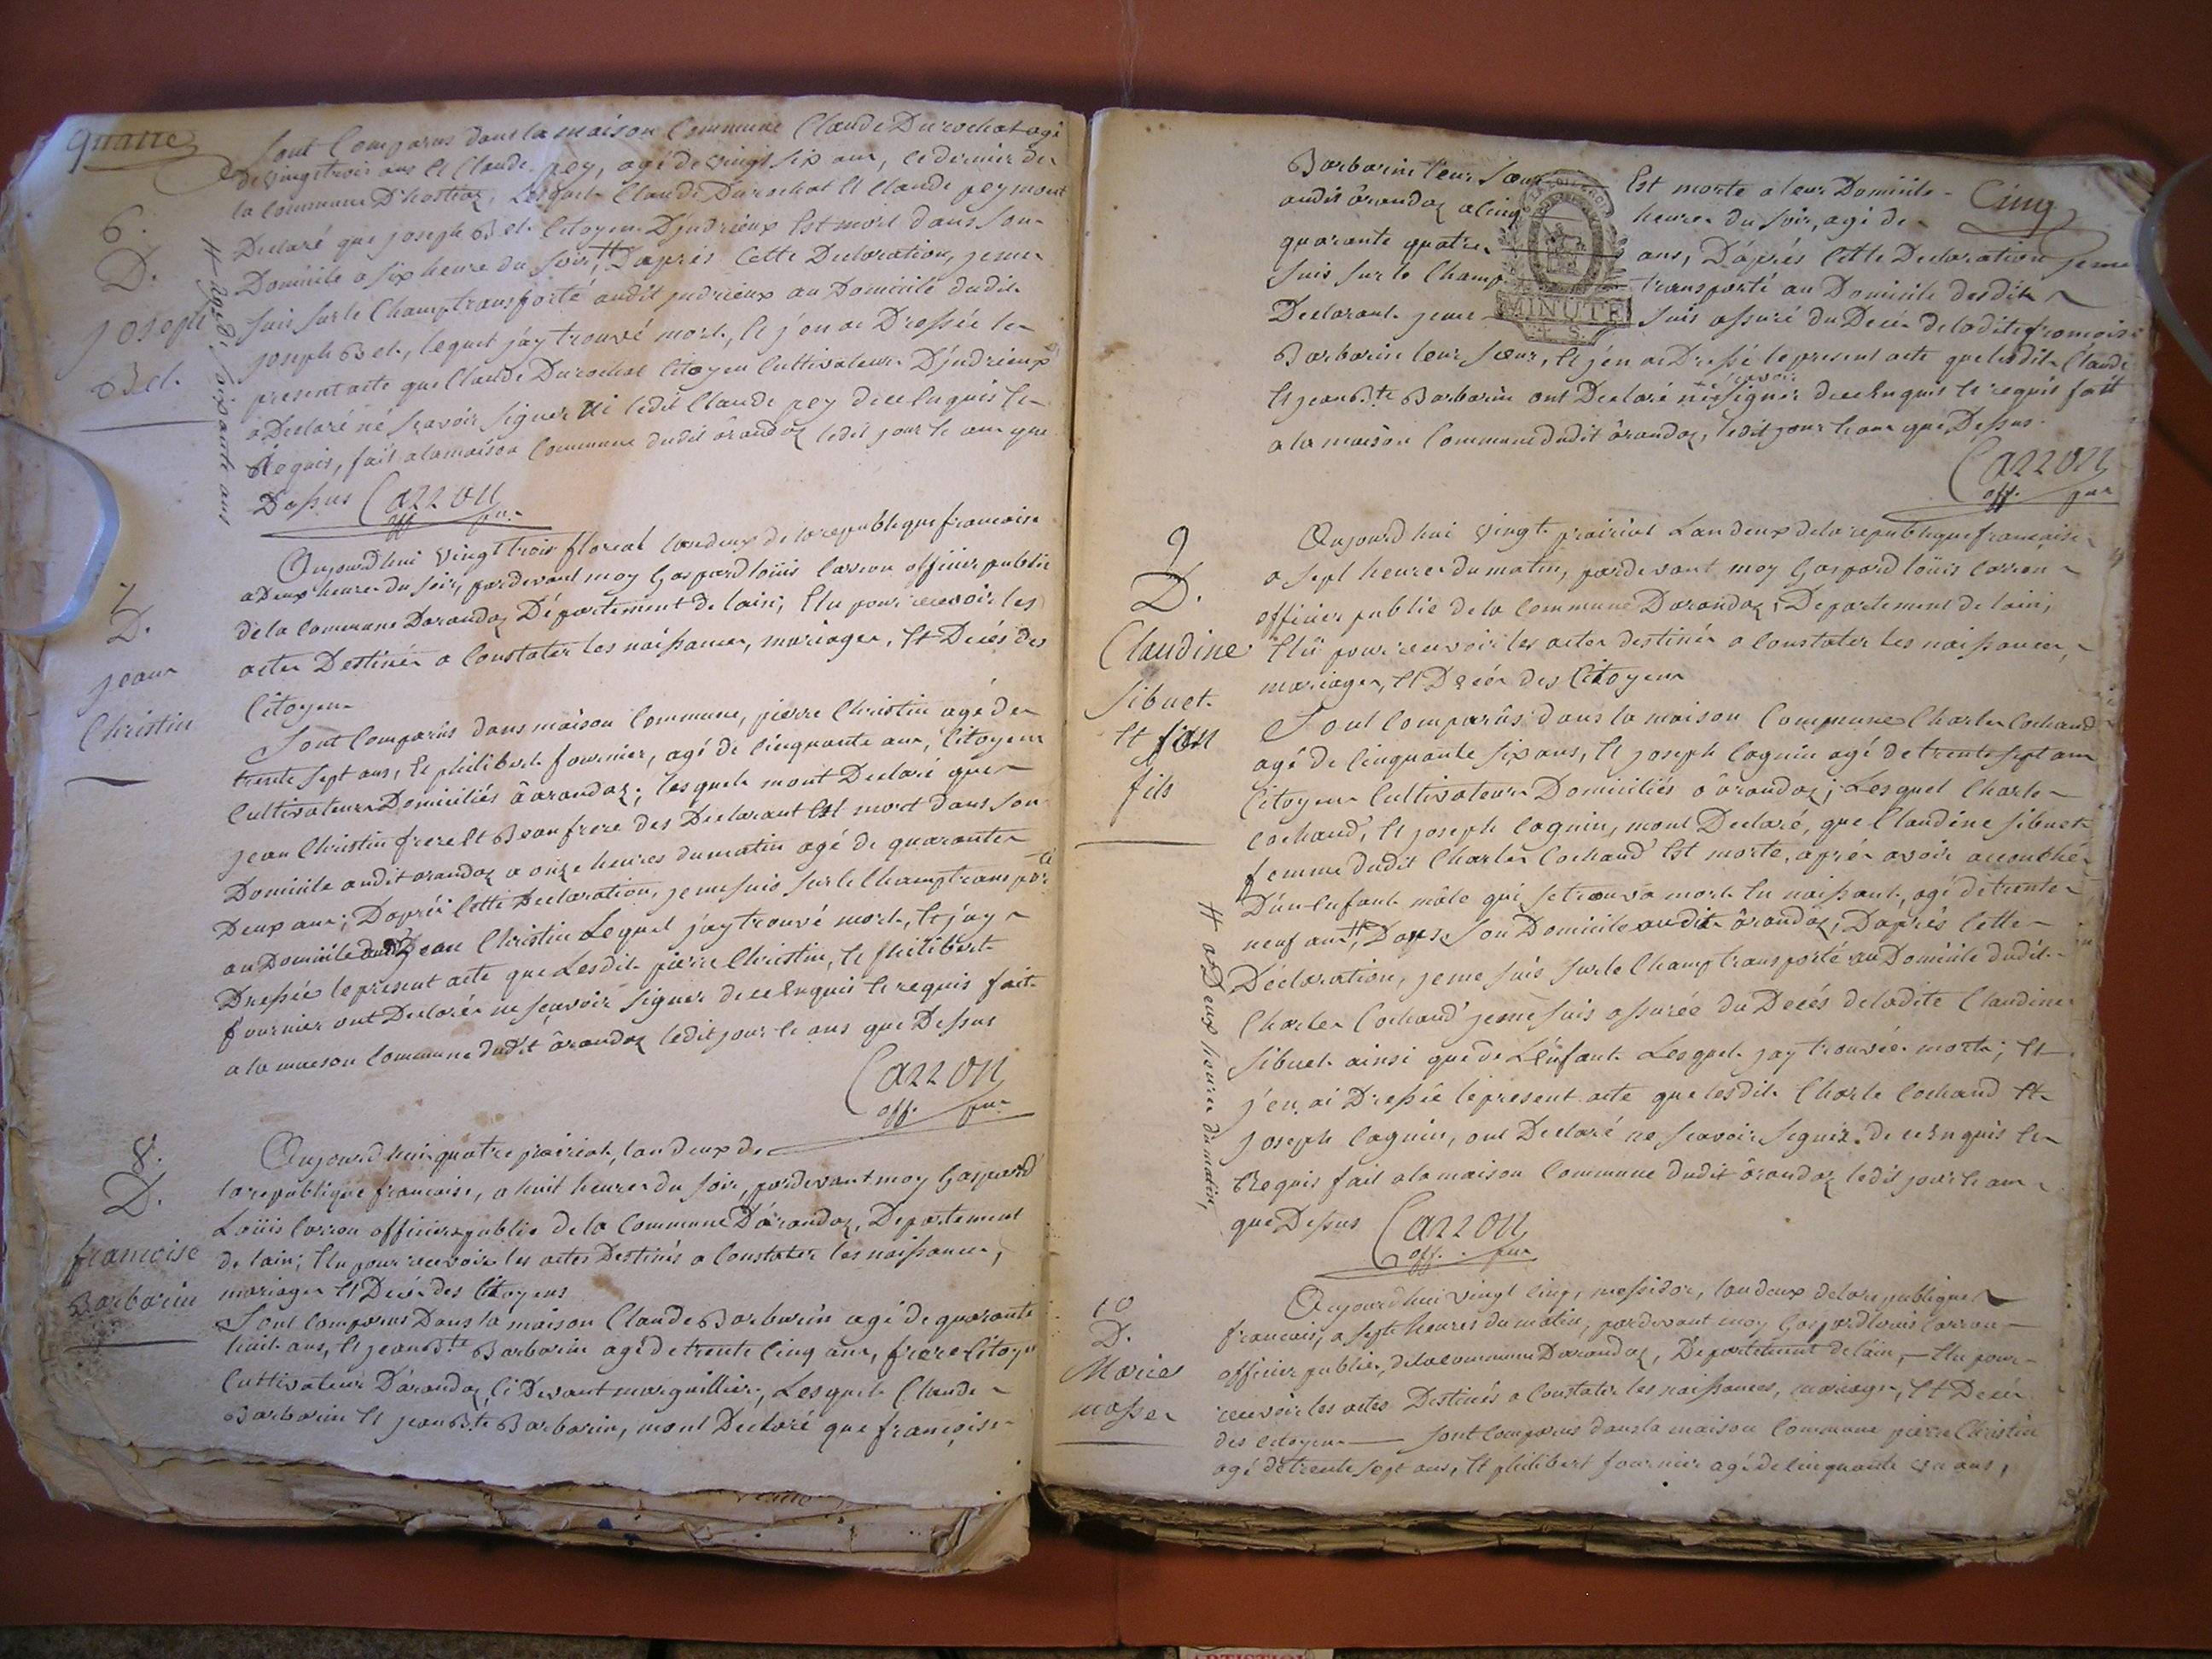 quatre
Sont Comparus dans la maison Commune Claude Durochat agé
de vingt trois ans Et Claude pey, agé de vingt six ans, ce dernier de
la Commune D'hostiaz, Lesquels Claude Durochat Et Claude pey mont
Declaré que joseph Bel Citoyen D'judrieux Est mort dans son
Domicile a six heure du soir, # D'aprés Cette Declaration, je me
suis sur le Champ transporté audit judrieux au Domicile dudit
joseph Bel, lequel j'ay trouvé mort, Et j'en ai Dressée le
present acte que Claude Durochat Citoyen Cultivateur D'judrieux
a Declaré né scavoir signer Ni ledit Claude pey de ce Enquis Et
Requis, fait a la maison Commune dudit ôrandaz ledit jour Et an que
Dessus Carron
off. pu.
6.
D.
joseph
Bel.
# agé de soixante ans
Aujourd'hui vingt trois floreal l'an deux de la republique francoise
a Deux heures du soir, pardevant moy Gaspard loüis Carron officier public
de la Commune Darandaz Département de lain, Elu pour recevoir les
actes Destinés a Constater les naissances, mariages, Et Decés des
Citoyens
Sont Comparûs dans maison Commune, pierre Christin agé de
trente sept ans, Et philibert fournier, agé de Cinquante ans, Citoyens
Cultivateurs Domiciliés â arandaz; lesquels mont Declaré que
jean Christin frere Et Beaufrere des Declarant Est mort dans son
Domicile audit arandaz a onze heures du matin agé de quarante
Deux ans; D'aprés Cette Declaration, je me suis sur le Champ transporté
au Domicile dudit jean Christin Lequel j'ay trouvé mort, Et j'ay
Dressée le present acte que Lesdit pierre Christin, Et philibert
fournier ont Declarés ne sçavoir signer de ce Enquis Et requis fait
a la maison Commune dudit ôrandaz ledit jour Et ans que Dessus
Carron
off. pu.
7
D.
jean
Christin
Aujourd'hui quatre prairial, l'an deux de
la republique francaise, a huit heures du soir, pardevant moy Gaspard
Loüis Carron officier public de la Commune D'arandaz, Departement
de lain; Elu pour recevoir les actes Destinés a Constater les naissances,
mariages Et Decés des Citoyens
Sont Comparus Dans la maison Claude Barbarin agé de quarante
huit ans, Et jean Bte Barbarin agé de trente Cinq ans, frere Citoyen
Cultivateur D'arandaz, Ci Devant marguillier, Lesquels Claude
Barbarin Et jean Bte Barbarin, mont Declaré que françoise
8.
D.
francoise
Barbarin
Cinq
Barbarin leur sœur Est morte a leur Domicile
audit ôrandaz a Cinq heures du soir, agé de
quarante quatre ans, D'aprés Cette Declaration je me
suis sur le Champ transporté au Domicile desdit
Declarant je me suis assuré du Decés de ladite francoise
Barbarin leur sœur, Et j'en ai Dressé le present acte que lesdit Claude
Et jean Bte Barbarin ont Declaré ne scavoir signer de ce Enquis Et requis fait
a la maison Commune dudit ôrandaz, ledit jour Et an que Dessus.
MINUTE
Carron
off. pu.
Aujourd'hui vingt prairial L'an deux de la republique francaise
a sept heures du matin, pardevant moy Gaspard loüis Carron
officier public de la Commune Darandaz; Departement de lain;
Elü pour recevoir les actes destinés a Constater les naissances,
mariages, Et Decés des Citoyens
Sont Comparûs dans la maison Commune Charles Cochand
agé de Cinquante six ans, Et joseph Cagnin agé de trente sept ans
Citoyens Cultivateurs Domiciliés ô ôrandaz; Lesquel Charle
Cochand, Et joseph Cagnin, mont Declaré, que Claudine sibuet
femme dudit Charles Cochand Est morte, aprés avoir accouchée
D'un Enfant mâle qui se trouva mort En naissant, agé de trente
neuf ans #, Dans son Domicile audit ôrandaz, D'aprés Cette
Déclaration, je me suis sur le Champ transporté au Domicile dudit
Charles Cochand je me suis assurée du Decés de ladite Claudine
sibuet ainsi que de L'enfant Lesquels jay trouvée morts; Et
j'en ai Dressée le present acte que lesdit Charle Cochand Et
joseph Cagnin, ont Declaré ne scavoir signer. de ce Enquis Et
Requis fait a la maison Commune dudit ôrandaz ledit jour Et an
que Dessus Carron
off. pu.
9
D.
Claudine
sibuet
Et son
fils
# a Deux heures du matin,
Aujourd'hui vingt Cinq, messidor, l'an deux de la republique
francais, a sept heures du matin, pardevant moy Gaspard louis Carron
officier public, de la commune Darandaz, Departement de lain, Elu pour
recevoir les actes Destinés a Constater les naissances, mariages, Et Decés
des citoyens sont Comparus dans la maison Commune pierre Christin
agé de trente sept ans, Et philibert fournier agé de cinquante un ans,
10
D.
Marie
masse